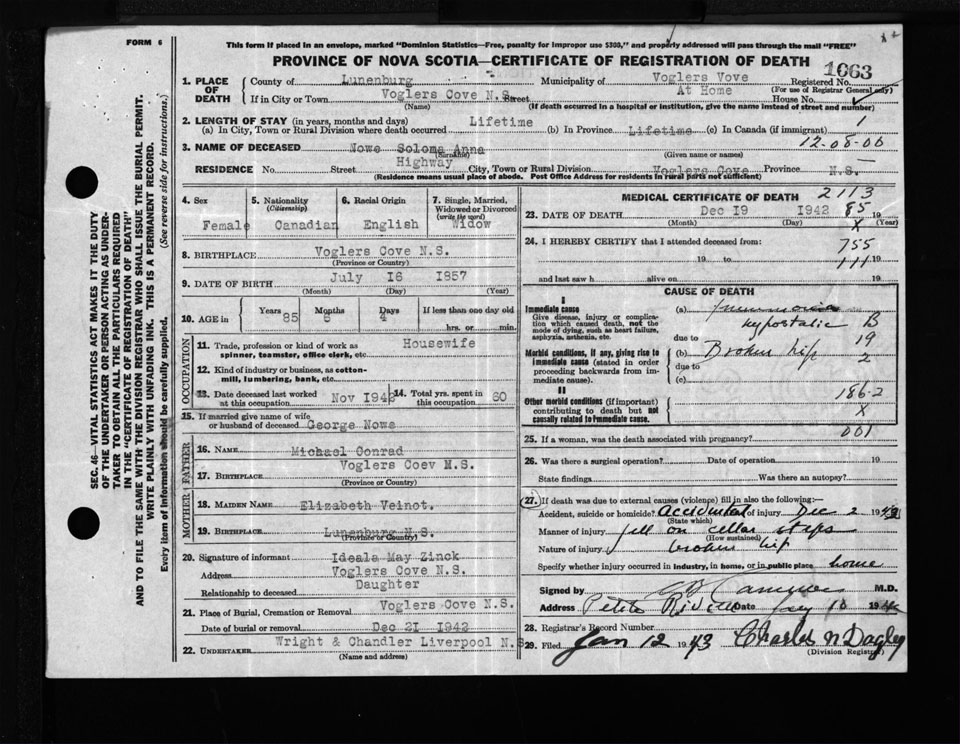 FORM 6
This form if placed in an envelope, marked "Dominion Statistics—Free, penalty for improper use $300," and properly addressed will pass through the mail "FREE"
PROVINCE OF NOVA SCOTIA—CERTIFICATE OF REGISTRATION OF DEATH
1063
1. PLACE OF DEATH
County of Lunenburg Municipality of Voglers Vove Registered No.
(For use of Registrar General only)
If in City or Town Voglers Cove N.S. Street At Home House No.
(Name) (If death occurred in a hospital or institution, give the name instead of street and number)
2. LENGTH OF STAY (in years, months and days)
(a) In City, Town or Rural Division where death occurred Lifetime (b) In Province Lifetime (c) In Canada (if immigrant) 1
12-08-06
3. NAME OF DECEASED Nowe Soloma Anna
(Surname) (Given name or names)
RESIDENCE No. Street Highway City, Town or Rural Division Voglers Cove Province N.S.
(Residence means usual place of abode. Post Office Address for residents in rural parts not sufficient)
4. Sex Female
5. Nationality (Citizenship) Canadian
6. Racial Origin English
7. Single, Married, Widowed or Divorced (write the word) Widow
8. BIRTHPLACE Voglers Cove N.S.
(Province or Country)
9. DATE OF BIRTH July 16 1857
(Month) (Day) (Year)
10. AGE in Years 85 Months 5 Days 4 If less than one day old hrs. or min.
OCCUPATION
11. Trade, profession or kind of work as spinner, teamster, office clerk, etc. Housewife
12. Kind of industry or business, as cotton-mill, lumbering, bank, etc.
13. Date deceased last worked at this occupation Nov 194
14. Total yrs. spent in this occupation 60
15. If married give name of wife or husband of deceased George Nowe
FATHER
16. NAME Michael Conrad
17. BIRTHPLACE Voglers Coev N.S.
(Province or Country)
MOTHER
18. MAIDEN NAME Elizabeth Veinot.
19. BIRTHPLACE Lunenburg N.S.
(Province or Country)
20. Signature of informant Ideala May Zinck
Address Voglers Cove N.S.
Relationship to deceased Daughter
21. Place of Burial, Cremation or Removal Voglers Cove N.S.
Date of burial or removal Dec 21 1942
22. UNDERTAKER Wright & Chandler Liverpool N.S.
(Name and address)
MEDICAL CERTIFICATE OF DEATH
2113
23. DATE OF DEATH Dec 19 1942 85 19
(Month) (Day) (Year)
X
24. I HEREBY CERTIFY that I attended deceased from:
755
19 to 19
111
and last saw h alive on 19
CAUSE OF DEATH
I
Immediate cause
Give disease, injury or complication which caused death, not the mode of dying, such as heart failure, asphyxia, asthenia, etc.
(a) Pneumonia
hypostatic B
due to 19
Morbid conditions, if any, giving rise to immediate cause (stated in order proceeding backwards from immediate cause).
(b) Broken hip 2
due to
(c)
II
Other morbid conditions (if important) contributing to death but not causally related to immediate cause.
186-2
X
001
25. If a woman, was the death associated with pregnancy?
26. Was there a surgical operation? Date of operation 19
State findings Was there an autopsy?
27. If death was due to external causes (violence) fill in also the following:
Accident, suicide or homicide? Accidental of injury Dec 2 1942
(State which)
Manner of injury fell on cellar steps
(How sustained)
Nature of injury broken hip
Specify whether injury occurred in industry, in home, or in public place home
Signed by M.D.
Address Petite Riviere Date Jany 10 194
28. Registrar's Record Number
29. Filed Jan 12 1943 Charles N Dagley
(Division Registrar)
SEC. 46—VITAL STATISTICS ACT MAKES IT THE DUTY
OF THE UNDERTAKER OR PERSON ACTING AS UNDERTAKER
TO OBTAIN ALL THE PARTICULARS REQUIRED
IN THE "CERTIFICATE OF REGISTRATION OF DEATH"
AND TO FILE THE SAME WITH THE DIVISION REGISTRAR WHO SHALL ISSUE THE BURIAL PERMIT.
WRITE PLAINLY WITH UNFADING INK. THIS IS A PERMANENT RECORD.
Every item of information should be carefully supplied. (See reverse side for instructions.)